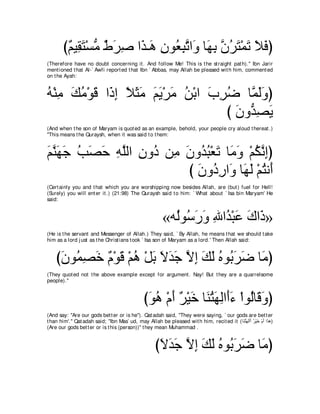 (فَلاَ تَمْتَرُنَّ بِهَا وَاتَّبِعُونِ هَـذَا صِرَطٌ مُّسْتَقِيمٌ)
(Therefore have no doubt concerning it. And follow Me! This is the straight path)." Ibn Jarir
mentioned that Al-`Awfi reported that Ibn `Abbas, may Allah be pleased with him, commented
on the Ayah:
(وَلَمَّا ضُرِبَ ابْنُ مَرْيَمَ مَثَلاً إِذَا قَوْمُكَ مِنْهُ
يَصِدُّونَ )
(And when the son of Maryam is quoted as an example, behold, your people cry aloud thereat.)
"This means the Quraysh, when it was said to them:
(إِنَّكُمْ وَمَا تَعْبُدُونَ مِن دُونِ اللَّهِ حَصَبُ جَهَنَّمَ
أَنتُمْ لَهَا وَارِدُونَ )
(Certainly you and that which you are worshipping now besides Allah, are (but) fuel for Hell!
(Surely) you will enter it.) (21:98) The Quraysh said to him: `What about `Isa bin Maryam' He
said:
«ذَاكَ عَبْدُاللهِ وَرَسُولُه»
(He is the servant and Messenger of Allah.) They said, `By Allah, he means that we should take
him as a lord just as the Christians took `Isa son of Maryam as a lord.' Then Allah said:
(مَا ضَرَبُوهُ لَكَ إِلاَّ جَدَلاَ بَلْ هُمْ قَوْمٌ خَصِمُونَ)
(They quoted not the above example except for argument. Nay! But they are a quarrelsome
people)."
(وَقَالُواْ ءَأَالِهَتُنَا خَيْرٌ أَمْ هُوَ)
(And say: "Are our gods better or is he"). Qatadah said, "They were saying, `our gods are better
than him'." Qatadah said; "Ibn Mas`ud, may Allah be pleased with him, recited it (وَقَالُوا أَآلِهَتُنَا خَيْرٌ أَمْ هذَا)
(Are our gods better or is this (person))" they mean Muhammad .
(مَا ضَرَبُوهُ لَكَ إِلاَّ جَدَلاَ)